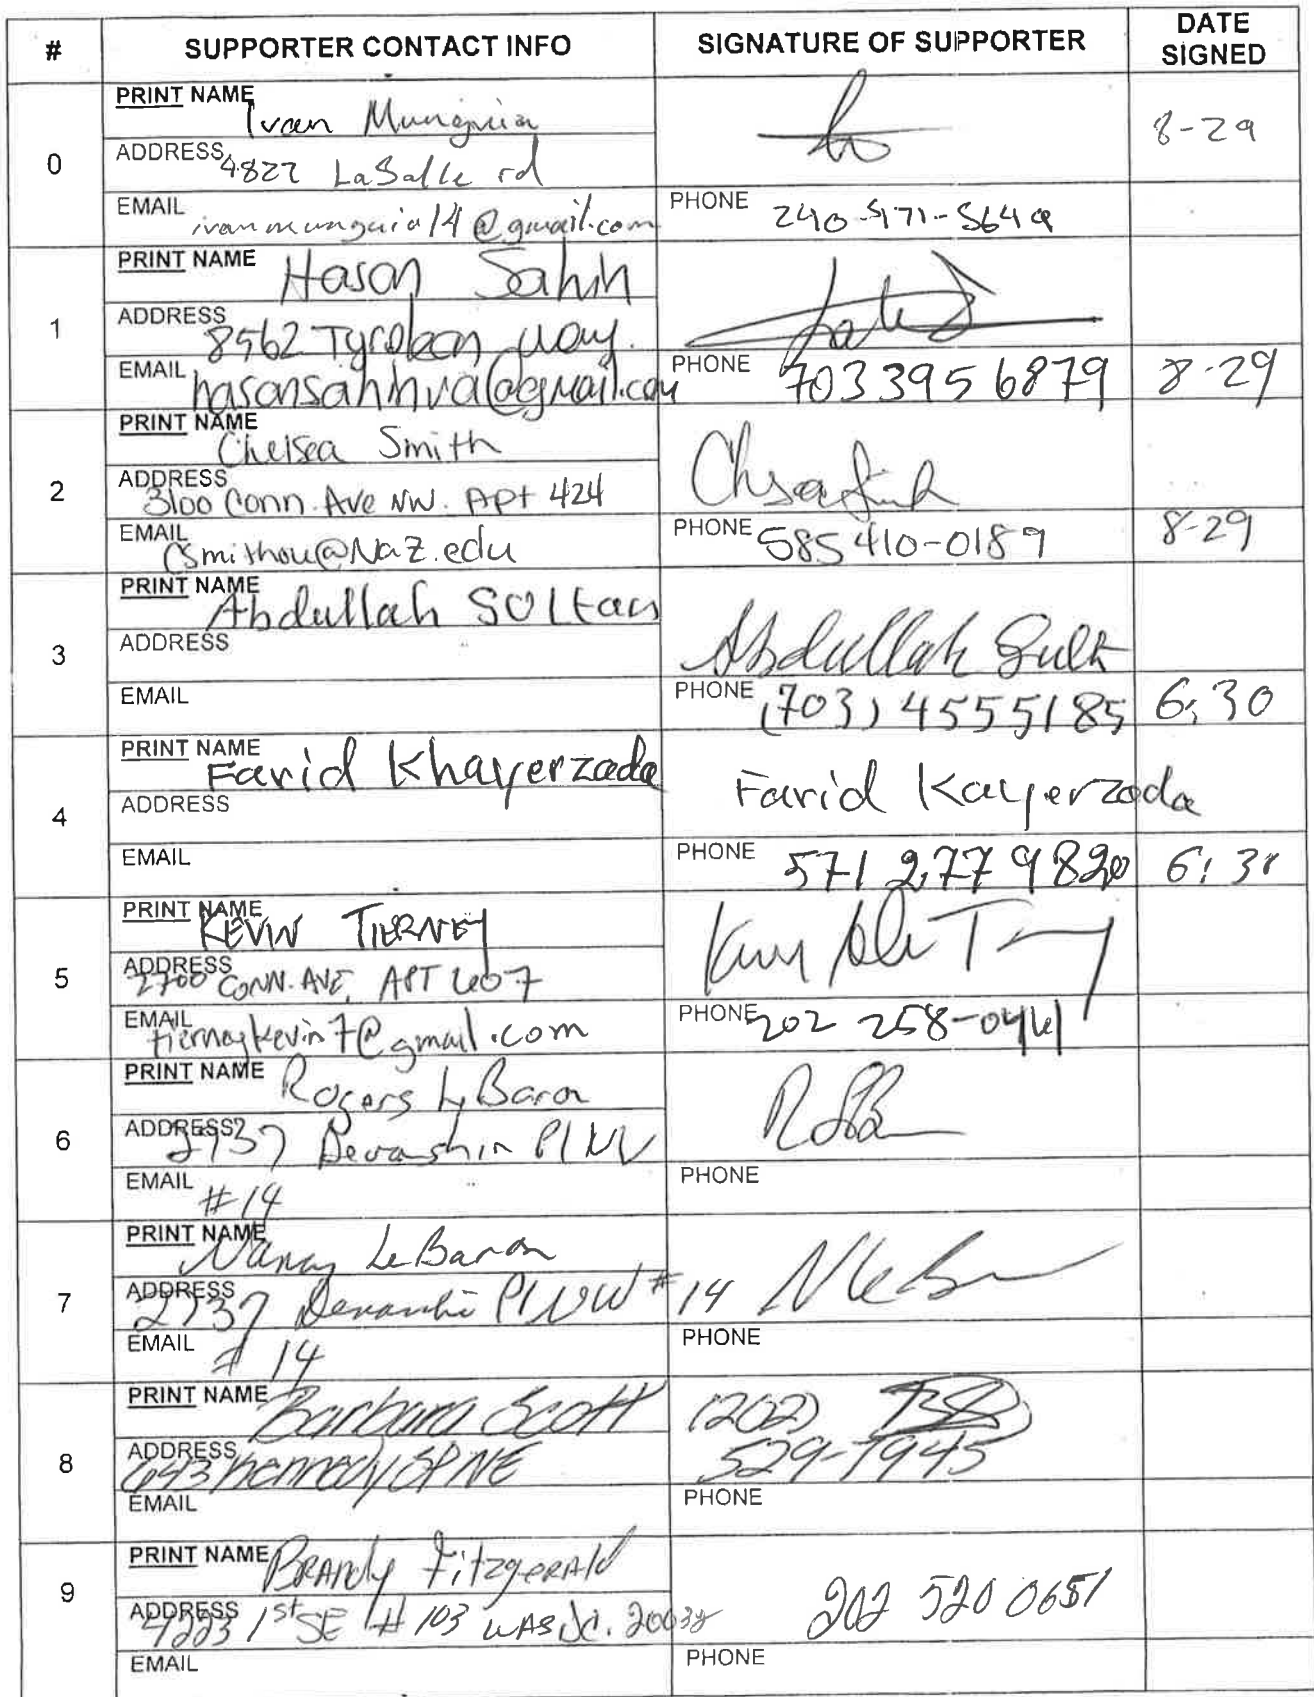 # SUPPORTER CONTACT INFO SIGNATURE OF SUPPORTER DATE SIGNED
0
PRINT NAME Ivan Munguia
8-29
ADDRESS 4827 LaSalle rd
EMAIL ivanmunguia14@gmail.com PHONE 240-471-5649
1
PRINT NAME Hasan Sahin
ADDRESS 8562 Tyrolean way.
EMAIL hasansahinva@gmail.com PHONE 703 395 6879 8-29
2
PRINT NAME Chelsea Smith
ADDRESS 3100 Conn. Ave NW. Apt 424
EMAIL Csmithou@Naz.edu PHONE 585 410-0189 8-29
3
PRINT NAME Abdullah Soltan
ADDRESS Abdullah Sult
EMAIL PHONE (703) 4555185 6:30
4
PRINT NAME Farid Khayerzada
ADDRESS Farid Kayerzada
EMAIL PHONE 571 277 9820 6:30
5
PRINT NAME KEVIN TIERNEY
ADDRESS 2700 CONN. AVE, APT 607
EMAIL tierneykevin7@gmail.com PHONE 202 258-0461
6
PRINT NAME Rogers LeBaron
ADDRESS 2737 Devonshire Pl NW
EMAIL #14 PHONE
7
PRINT NAME Nancy LeBaron
ADDRESS 2737 Devonshire Pl NW #14
EMAIL #14 PHONE
8
PRINT NAME Barbara Scott (202) BS
ADDRESS 643 Kennedy St NE 529-7945
EMAIL PHONE
9
PRINT NAME Brandy Fitzgerald
ADDRESS 4223 1st SE #103 WAS DC. 20032 202 520 0651
EMAIL PHONE